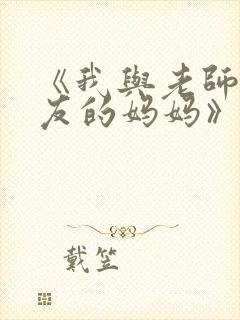 《我與老師
友的妈妈》
戴笠